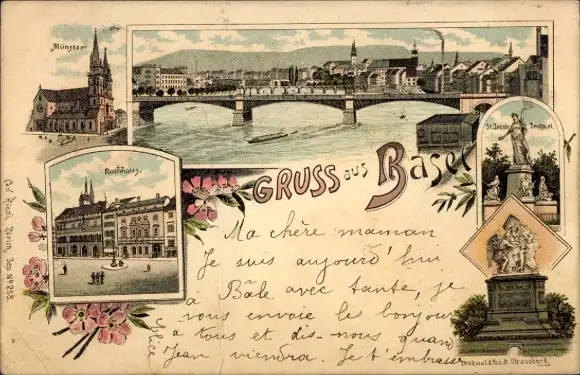 Münster
St. Jacobs Denkmal
Rathhaus.
GRUSS aus Basel
Ma chère maman
Je suis aujourd'hui
a Bâle avec tante, je
vous envoie le bonjour
a tous et dis-nous quand
Jean viendra. Je t'embrasse
Alice
Denkmal d. Stadt Strassburg.
Zürich, Dep. No 258.